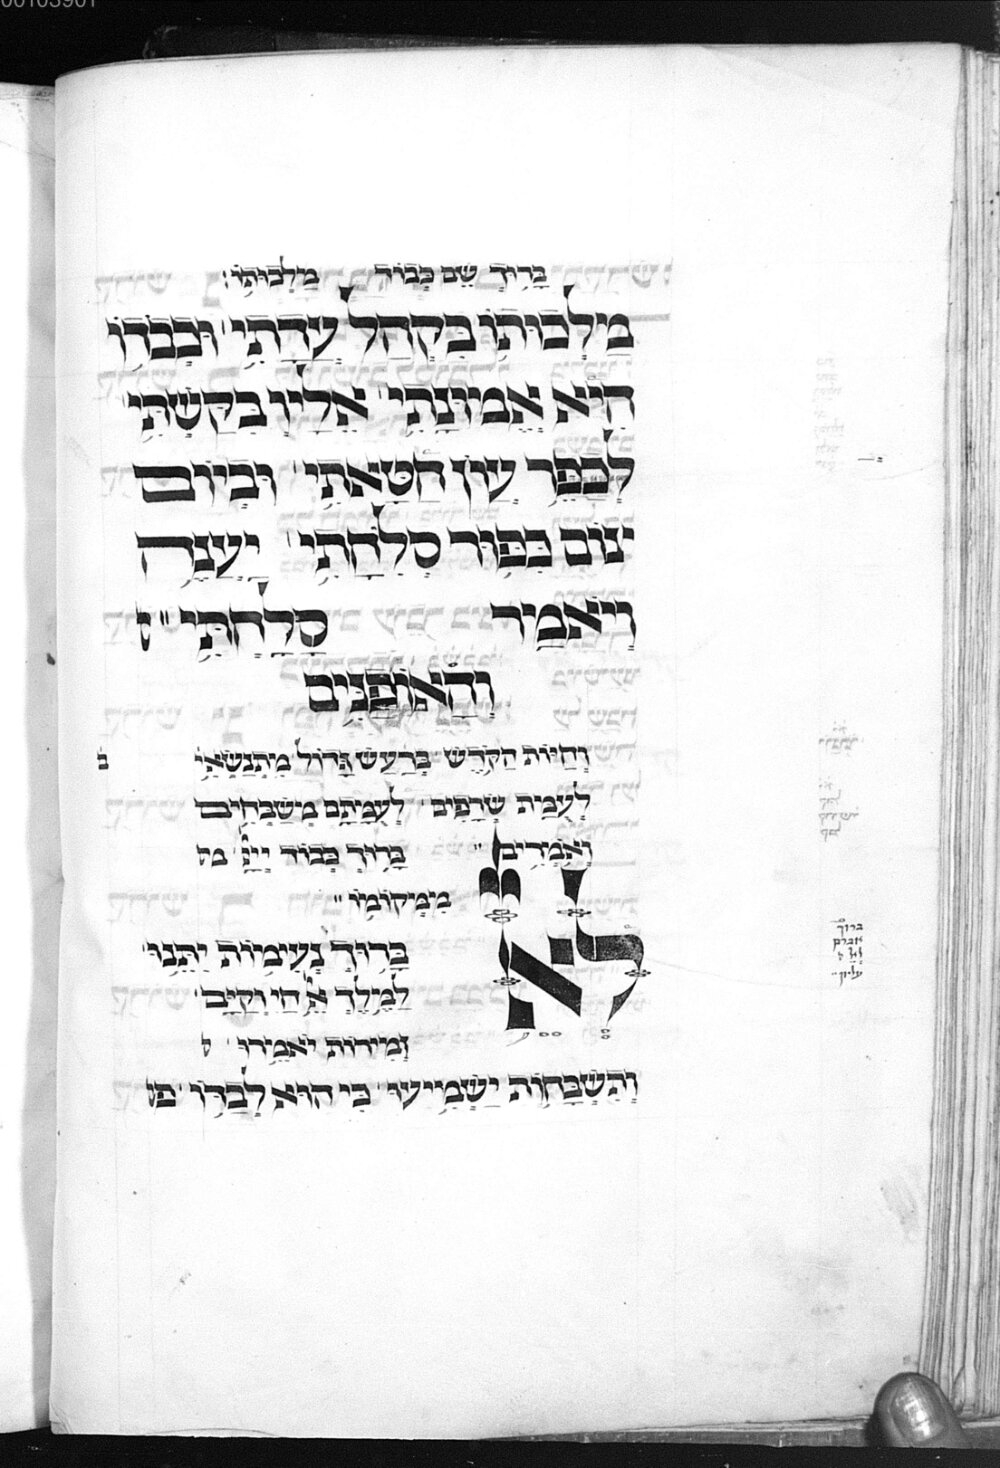 בָּרוּךְ שֵׁם כְּבוֹד מַלְכוּתוֹ׃
מַלְכוּתוֹ בִּקְהַל עֲדָתִי׳ וּכְבֹדוֹ
הִיא אֱמוּנָתִי׳ אֵלָיו בִּקַּשְׁתִּי׳
לְכַפֵּר עֲוֹן חַטָּאתִי׳ וּבְיוֹם
צוֹם כִּפּוּר סְלִיחָתִי׳ יַעֲנֶה
וְיֹאמַר סָלַחְתִּי ׳׳
וְהָאוֹפַנִּים
וְחַיּוֹת הַקֹּדֶשׁ בְּרַעַשׁ גָּדוֹל מִתְנַשְּׂאִי׳
לְעֻמַּת שְׂרָפִים׳ לְעֻמָּתָם מְשַׁבְּחִים
וְאוֹמְרִים ׳׳ בָּרוּךְ כְּבוֹד יְיָ׳
מִמְּקוֹמוֹ ׳׳
לאל
בָּרוּךְ נְעִימוֹת יִתֵּנוּ׳
לַמֶּלֶךְ אֵל חַי וְקַיָּם׳
זְמִירוֹת יֹאמֵרוּ׳
וְתִשְׁבָּחוֹת יַשְׁמִיעוּ׳ כִּי הוּא לְבַדּוֹ׳
ברוך
אברם
לאל
עליון